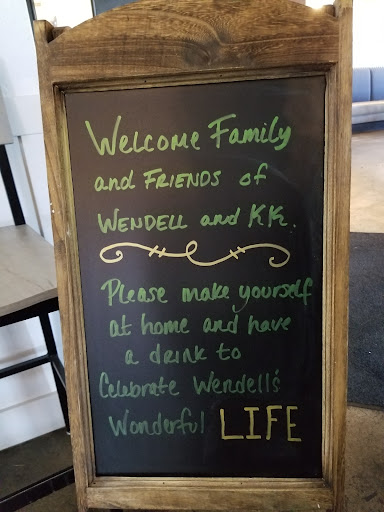 Welcome Family
and FRIENDS of
WENDELL and KK.
Please make yourself
at home and have
a drink to
Celebrate Wendell's
Wonderful LIFE